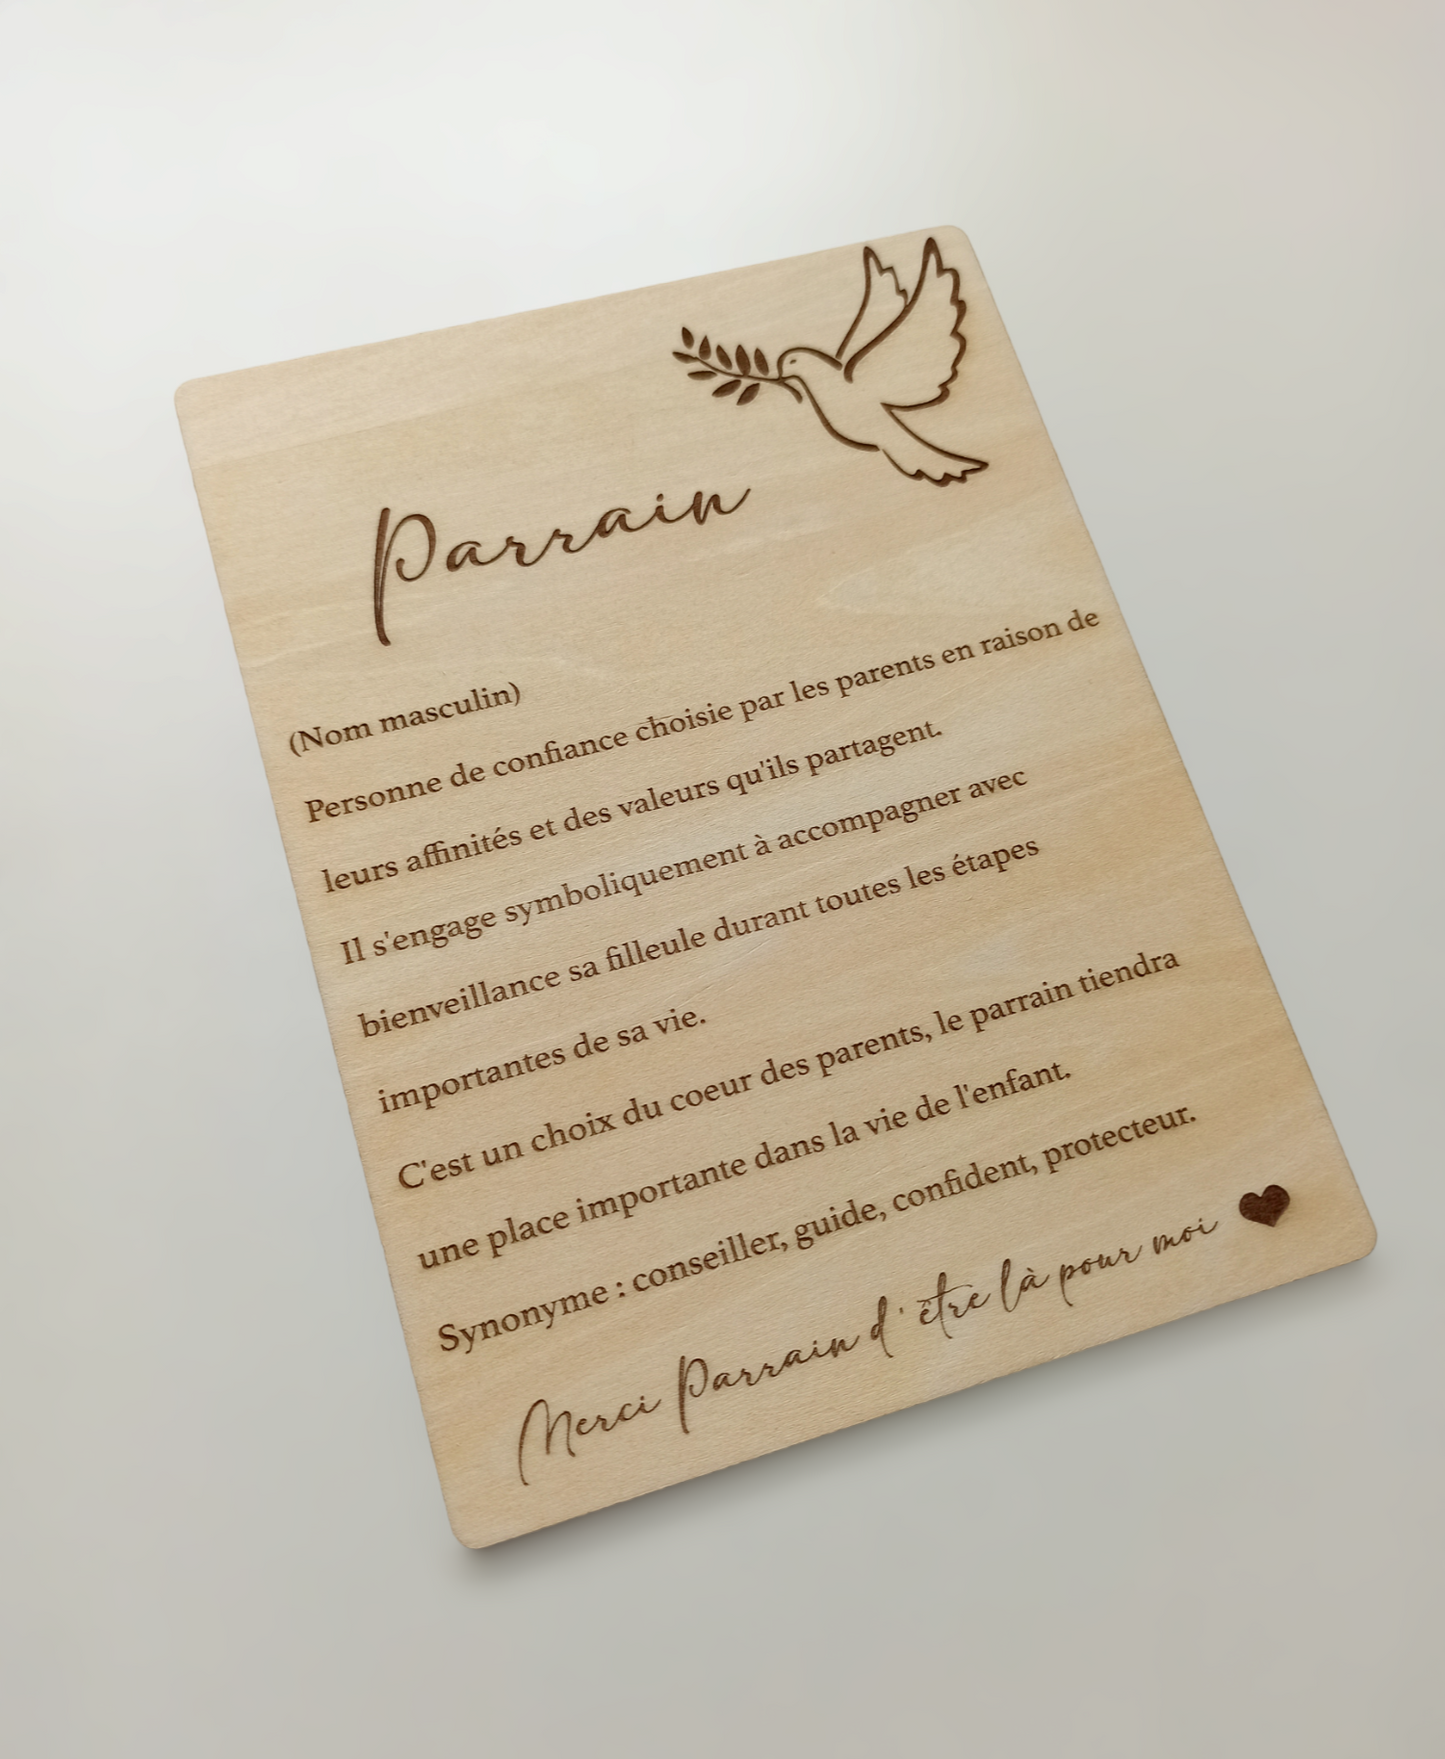 Parrain
(Nom masculin)
Personne de confiance choisie par les parents en raison de
leurs affinités et des valeurs qu'ils partagent.
Il s'engage symboliquement à accompagner avec
bienveillance sa filleule durant toutes les étapes
importantes de sa vie.
C'est un choix du coeur des parents, le parrain tiendra
une place importante dans la vie de l'enfant.
Synonyme : conseiller, guide, confident, protecteur.
Merci Parrain d'être là pour moi